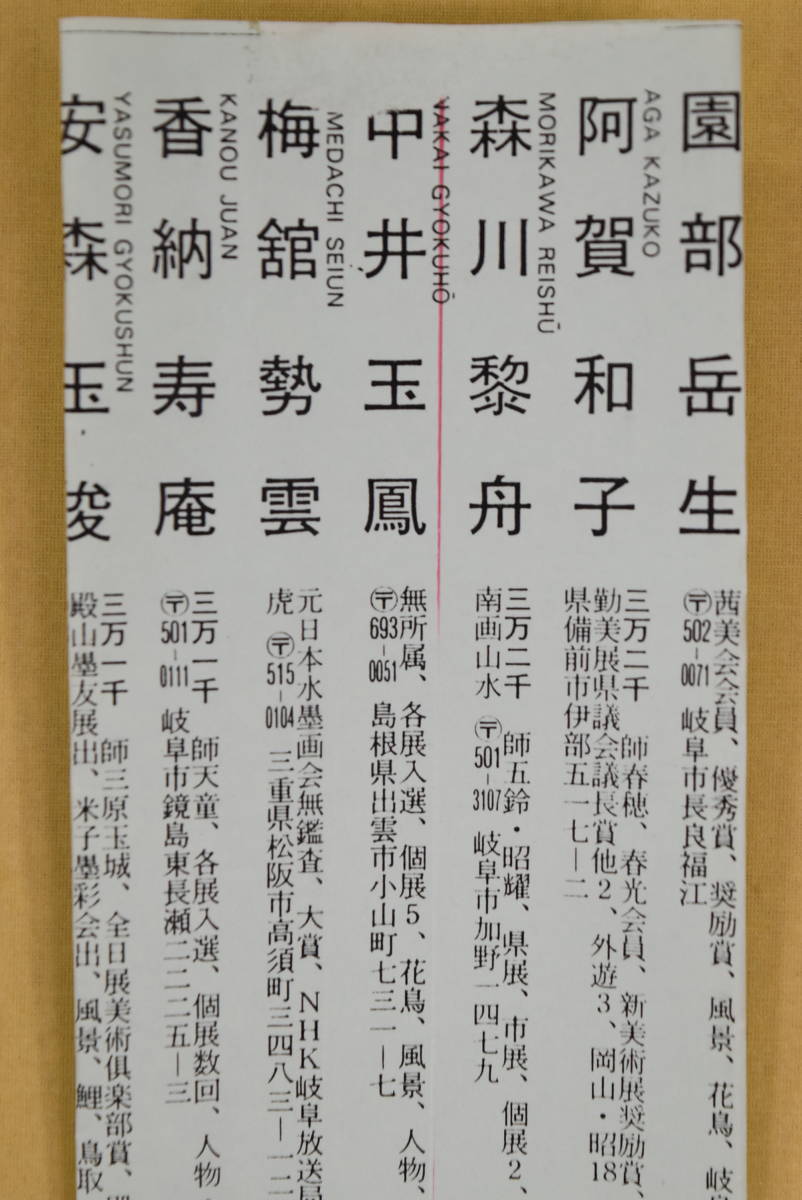 園部岳生
茜美会会員、優秀賞、奨励賞、風景、花鳥、岐阜
〒502-0071 岐阜市長良福江
AGA KAZUKO
阿賀和子
三万二千 師春穂、春光会員、新美術展奨励賞、
勤美展県議会議長賞他2、外遊3、岡山・昭18
県備前市伊部五一七ー二
MORIKAWA REISHŪ
森川黎舟
三万二千 師五鈴・昭耀、県展、市展、個展2、
南画山水 〒501-3107 岐阜市加野一四七九
NAKAI GYOKUHŌ
中井玉鳳
無所属、各展入選、個展5、花鳥、風景、人物、
〒693-0051 島根県出雲市小山町七三一ー七
MEDACHI SEIUN
梅舘勢雲
元日本水墨画会無鑑査、大賞、NHK岐阜放送局
虎 〒515-0104 三重県松阪市高須町三四八三ー一二
KANOU JUAN
香納寿庵
三万一千 師天童、各展入選、個展数回、人物、
〒501-0111 岐阜市鏡島東長瀬二二二五ー三
YASUMORI GYOKUSHUN
安森玉俊
三万一千 師三原玉城、全日展美術倶楽部賞、
殿山墨友展出、米子墨彩会出、風景、鯉、鳥取